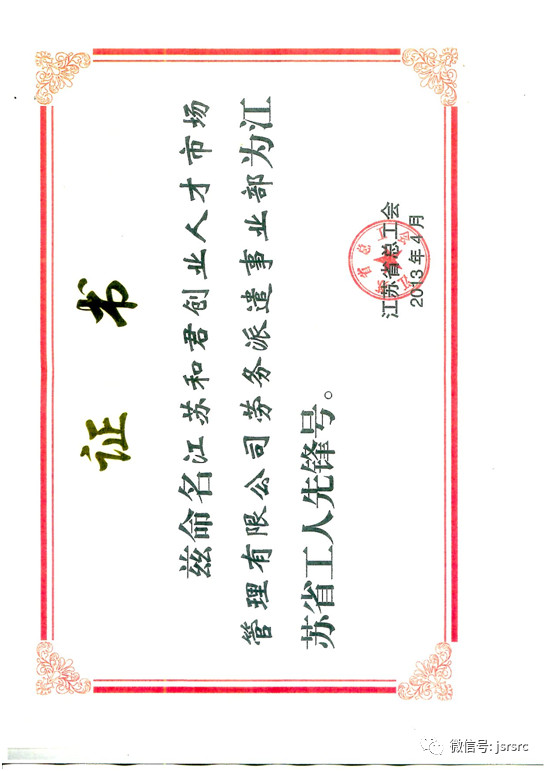 证书
兹命名江苏和君创业人才市场
管理有限公司劳务派遣事业部为江
苏省工人先锋号。
江苏省总工会
2013年4月
江苏省总工会
微信号: jsrsrc